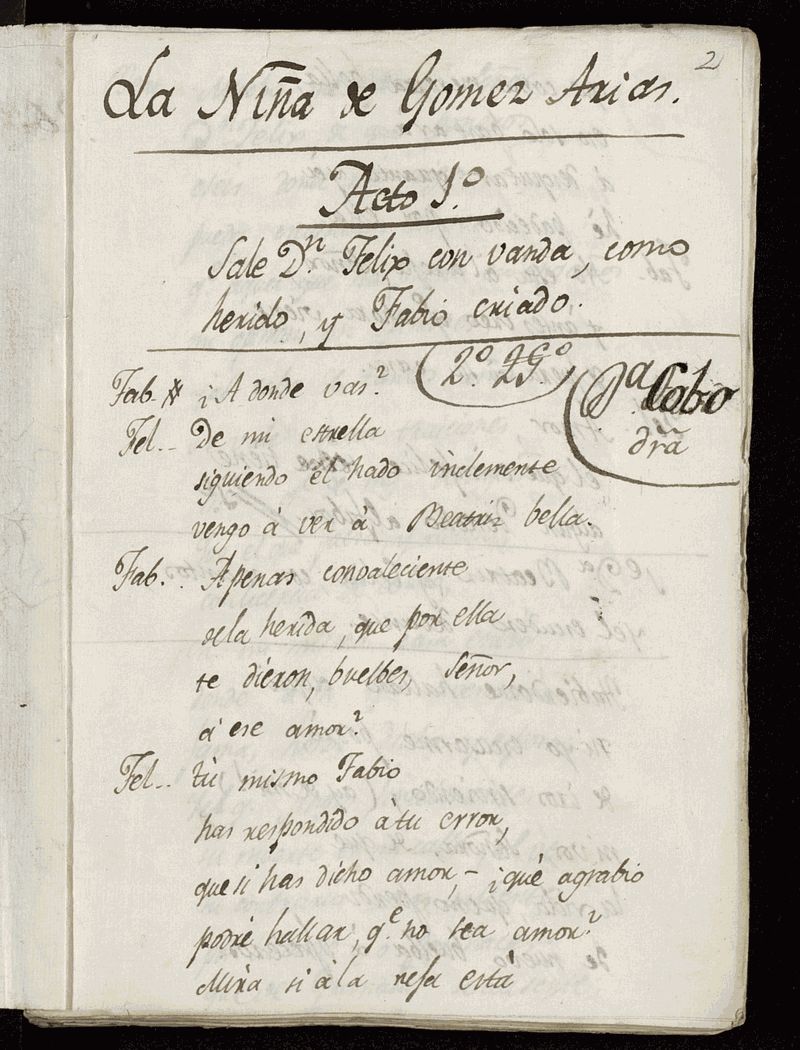 2
La Niña de Gomez Arias.
Acto 1.º
Sale Dn. Felix con vanda, como
herido, y Fabio criado.
Fab. ¿A donde vas?
2º
Dª Cobo
drã
Fel.. De mi estrella
siguiendo el hado inclemente
vengo á ver á Beatriz bella.
Fab. Apenas convaleciente
dela herida, que por ella
te dieron, buelbes, Señor,
á ese amor?
Fel.. tú mismo Fabio
has respondido á tu error,
que si has dicho amor, – ¿què agrabio
podré hallar, q.e no sea amor?
Mira si á la resa está